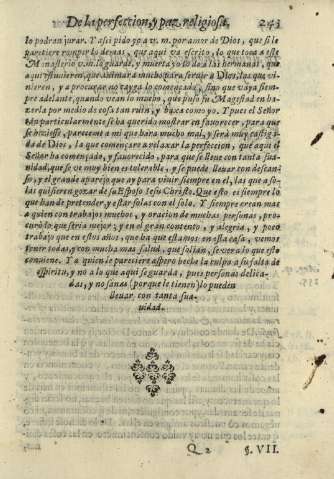 De la perfeccion, y paz religiosa. 243
lo podran jurar. Y assi pido yo a v. m. por amor de Dios, que si le
pareciere romper lo demas, que aqui va escrito, lo que toca a este
Monasterio v. m. lo guarde, y muerta yo lo dè a las hermanas, que
aqui estuvieren, que animara mucho para servir a Dios, las que vi-
nieren, y a procurar no cayga lo començado, sino que vaya siem-
pre adelante, quando vean lo mucho, que puso su Magestad en ha-
zerla por medio de cosa tan ruin, y baxa como yo. Y pues el Señor
tan particularmente se ha querido mostrar en favorecer, para que
se hiziesse, pareceme a mi que hara mucho mal, y serà muy castiga-
da de Dios, la que començare a relaxar la perfeccion, que aqui el
Señor ha començado, y favorecido, para que se lleve con tanta sua-
vidad, que se ve muy bien es tolerable, y se puede llevar con descan-
so, y el grande aparejo que ay para vivir siempre en el, las que a so-
las quisieren gozar de su Esposo Iesu Christo. Que esto es siempre lo
que han de pretender, y estar solas con el solo. Y siempre crean mas
a quien con trabajos muchos, y oracion de muchas personas, pro-
curò lo que seria mejor; y en el gran contento, y alegria, y poco
trabajo que en estos años, que ha que estamos en esta casa, vemos
tener todas, y con mucha mas salud, que solian, se vera lo que esto
conviene. Y a quien le pareciere aspero heche la culpa a su falta de
espiritu, y no a lo que aqui se guarda, pues personas delica-
das, y no sanas (porque le tienen) lo pueden
llevar con tanta sua-
vidad.
Q 2 §. VII.